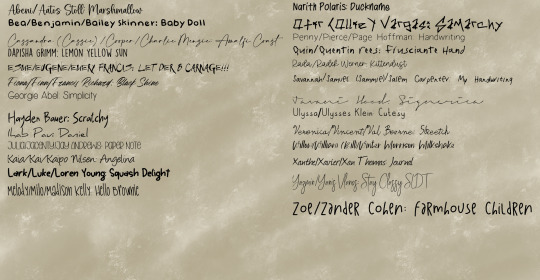 Abeni/Aates Stoll: Marshmallow
Bea/Benjamin/Bailey Skinner: Baby Doll
Cassandra (Cassie) /Cooper/Charlie Menzie: Amalfi Coast
DAPISHA GRIMM: LEMON YELLOW SUN
ESME/EUGENE/EMERY FRANCIS: LET DER B CARNAGE!!!
Fiona/Finn/Francis Richard: Black Shine
Georgie Abel: Simplicity
Hayden Bauer: Scratchy
Ihab Paul Daniel
JULIA/JACENTY/JAY ANDREWS: PAPER NOTE
Kaia/Kai/Kapo Nilsen: Angelina
Lark/Luke/Loren Young: Squash Delight
Melody/Milo/Madison Kelly: Hello Brownie
Narith Polaris: Duckname
Vargas: Samarchy
Penny/Pierce/Page Hoffman: Handwriting
Quin/Quentin Rees: Frusciante Hand
Werner: Kittendust
Savannah/Samuel (Sammie)/Salem Carpenter: My Handwriting
Hood: Signerica
Ulyssa/Ulysses Klein: Cutesy
Veronica/Vincent/Val Boerne: Skeetch
Morrison: Milkshake
Xanthe/Xavier/Xen Thomas: Journal
Stay Classy SLDT
Zoe/Zander Cohen: Farmhouse Children